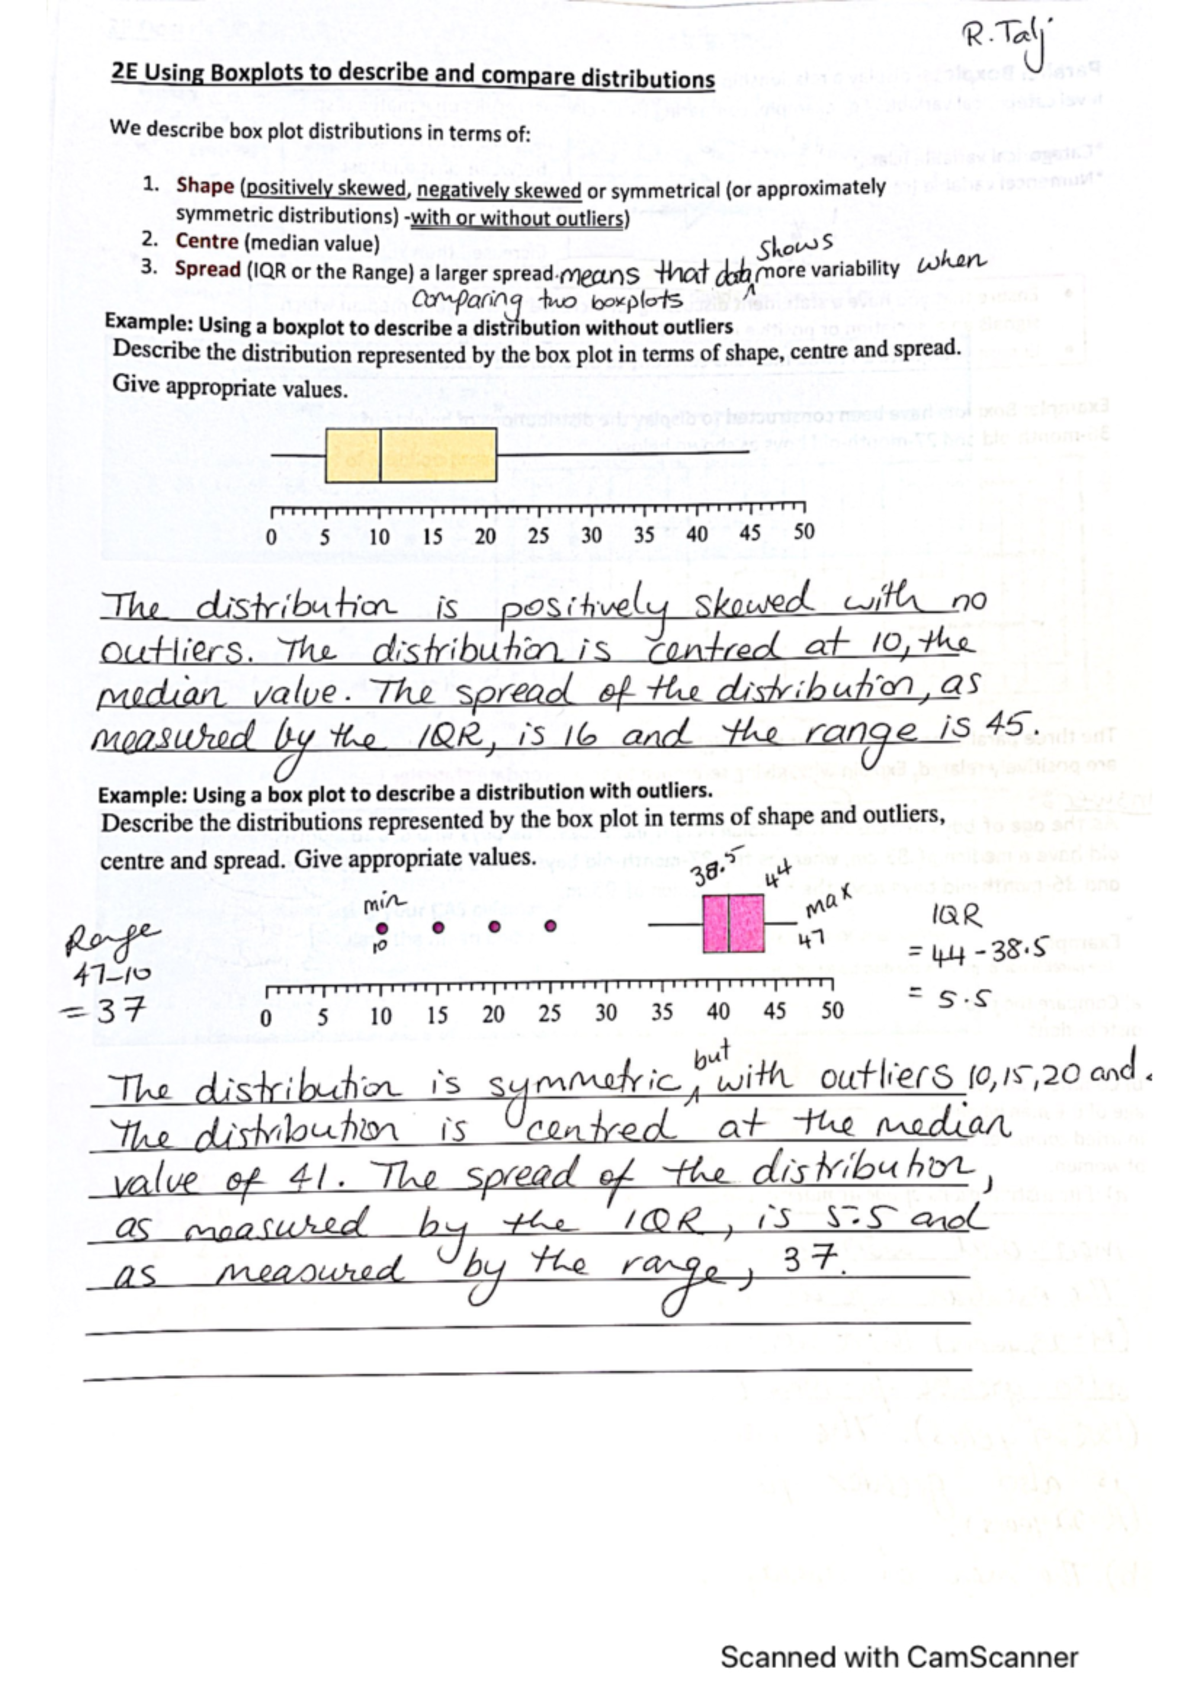 R. Talj
2E Using Boxplots to describe and compare distributions
We describe box plot distributions in terms of:
1. Shape (positively skewed, negatively skewed or symmetrical (or approximately
symmetric distributions) -with or without outliers)
2. Centre (median value)
shows
3. Spread (IQR or the Range) a larger spread means that data more variability when
comparing two boxplots
Example: Using a boxplot to describe a distribution without outliers
Describe the distribution represented by the box plot in terms of shape, centre and spread.
Give appropriate values.
0 5 10 15 20 25 30 35 40 45 50
The distribution is positively skewed with no
outliers. The distribution is centred at 10, the
median value. The spread of the distribution, as
measured by the IQR, is 16 and the range is 45.
Example: Using a box plot to describe a distribution with outliers.
Describe the distributions represented by the box plot in terms of shape and outliers,
centre and spread. Give appropriate values.
38.5 44
min max
10 47
Range
47-10
= 37
IQR
= 44-38.5
= 5.5
0 5 10 15 20 25 30 35 40 45 50
but
The distribution is symmetric, with outliers 10,15,20 and
The distribution is centred at the median
value of 41. The spread of the distribution,
as measured by the IQR, is 5.5 and
as measured by the range, 37.
Scanned with CamScanner